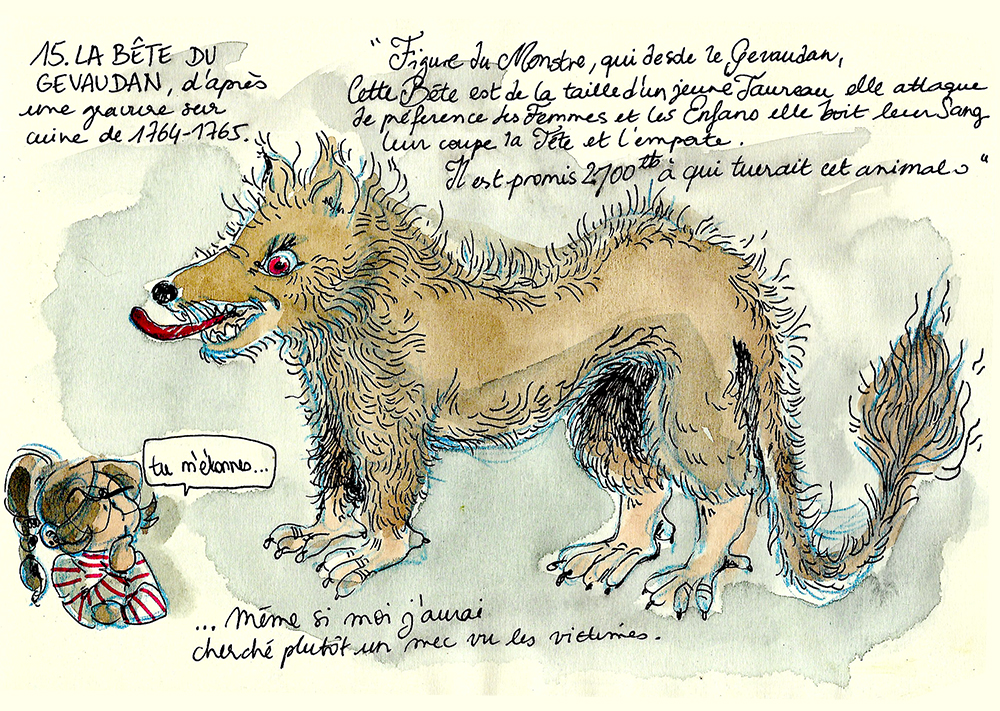 15. LA BÊTE DU
GEVAUDAN, d'après
une gravure sur
cuivre de 1764-1765.
"Figure du Monstre, qui desole le Gevaudan,
Cette Bête est de la taille d'un jeune Taureau elle attaque
de préference les Femmes et les Enfans elle boit leur Sang
leur coupe la Tête et l'emporte.
Il est promis 2700 tt à qui tuerait cet animal."
tu m'étonnes...
... même si moi j'aurai
cherché plutôt un mec vu les victimes.